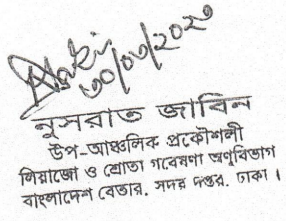 ৩০/০৩/২০২৩
নুসরাত জাবিন
উপ-আঞ্চলিক প্রকৌশলী
লিয়াজো ও শ্রোতা গবেষণা অণুবিভাগ
বাংলাদেশ বেতার, সদর দপ্তর, ঢাকা।